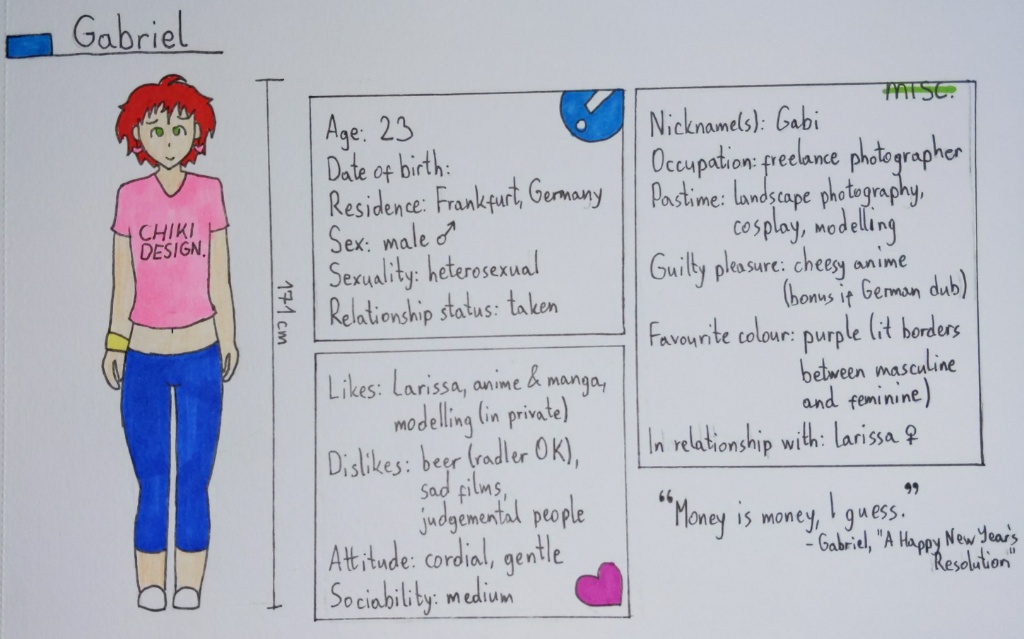 Gabriel
CHIKI
DESIGN.
171 cm
Age: 23
Date of birth:
Residence: Frankfurt, Germany
Sex: male ♂
Sexuality: heterosexual
Relationship status: taken
Likes: Larissa, anime & manga,
modelling (in private)
Dislikes: beer (radler OK),
sad films,
judgemental people
Attitude: cordial, gentle
Sociability: medium
misc.
Nickname(s): Gabi
Occupation: freelance photographer
Pastime: landscape photography,
cosplay, modelling
Guilty pleasure: cheesy anime
(bonus if German dub)
Favourite colour: purple (it borders
between masculine
and feminine)
In relationship with: Larissa ♀
“Money is money, I guess.”
- Gabriel, "A Happy New Year's
Resolution"